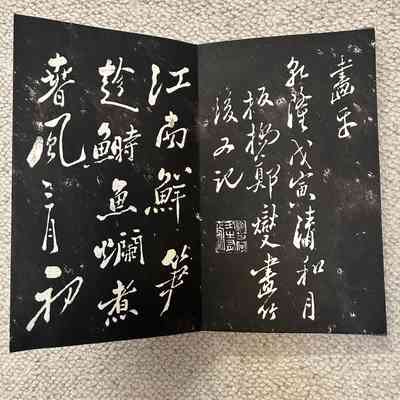 畫
乾隆戊寅清和月
板橋鄭燮畫竹
後又記
江南鮮筍
趁鰣魚爛煮
春風三月初